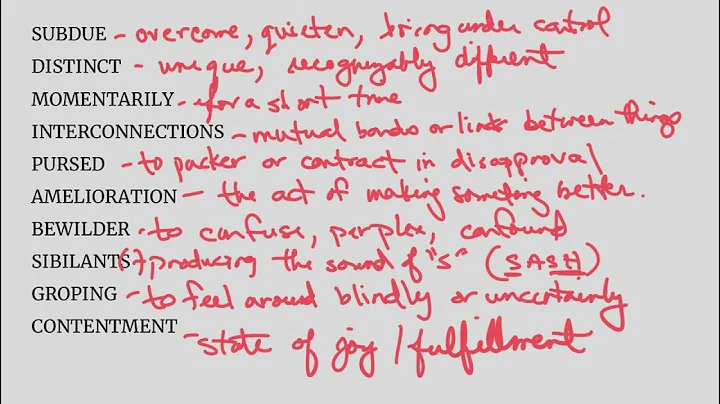 SUBDUE - overcome, quieten, bring under control
DISTINCT - unique, recognizably different
MOMENTARILY - for a short time
INTERCONNECTIONS - mutual bonds or links between things
PURSED - to pucker or contract in disapproval
AMELIORATION - the act of making something better.
BEWILDER - to confuse, perplex, confound
SIBILANTS (n) producing the sound of "s" (SASH)
GROPING - to feel around blindly or uncertainly
CONTENTMENT - state of joy / fulfillment